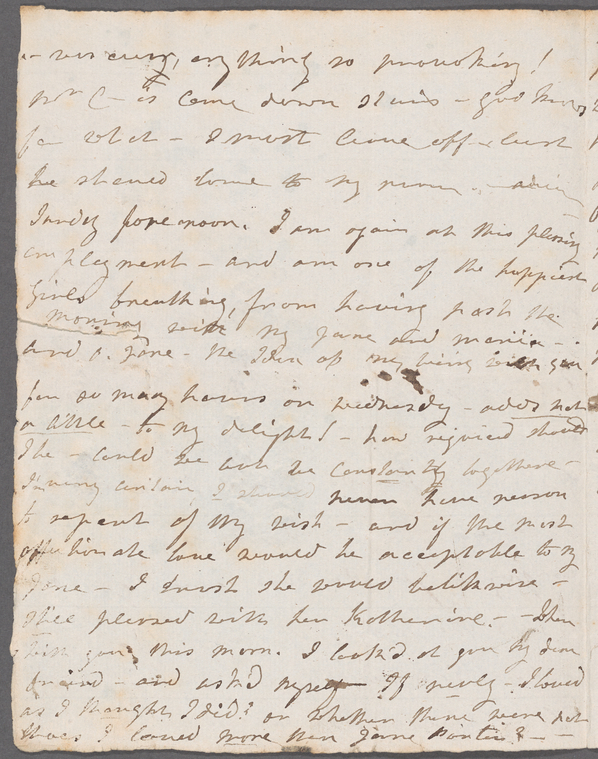 any thing so provoking!
Mrs C- is come down stairs - god knows
for what - I must leave off - lest
he should come to my room - adieu
Sunday forenoon. I am again at this pleasing
employment - and am one of the happiest
Girls breathing, from having past the
morning with my Jane and maria -
and O. Jane - the Idea of my being with you
for so many hours on wednesday - adds not
a little - to my delight! - how rejoiced should
I be - could we but be constantly together -
I'm very certain, I should never have reason
to repent of my wish - and if the most
affectionate love would be acceptable to my
Jane - I trust she would be likewise -
pleased with her Katherine. - - When
with you, this morn. I look'd at you my dear
friend - and ask'd myself If realy - I loved
as I thought I did? or whether there were not
I loved more than Jane Porter? - -